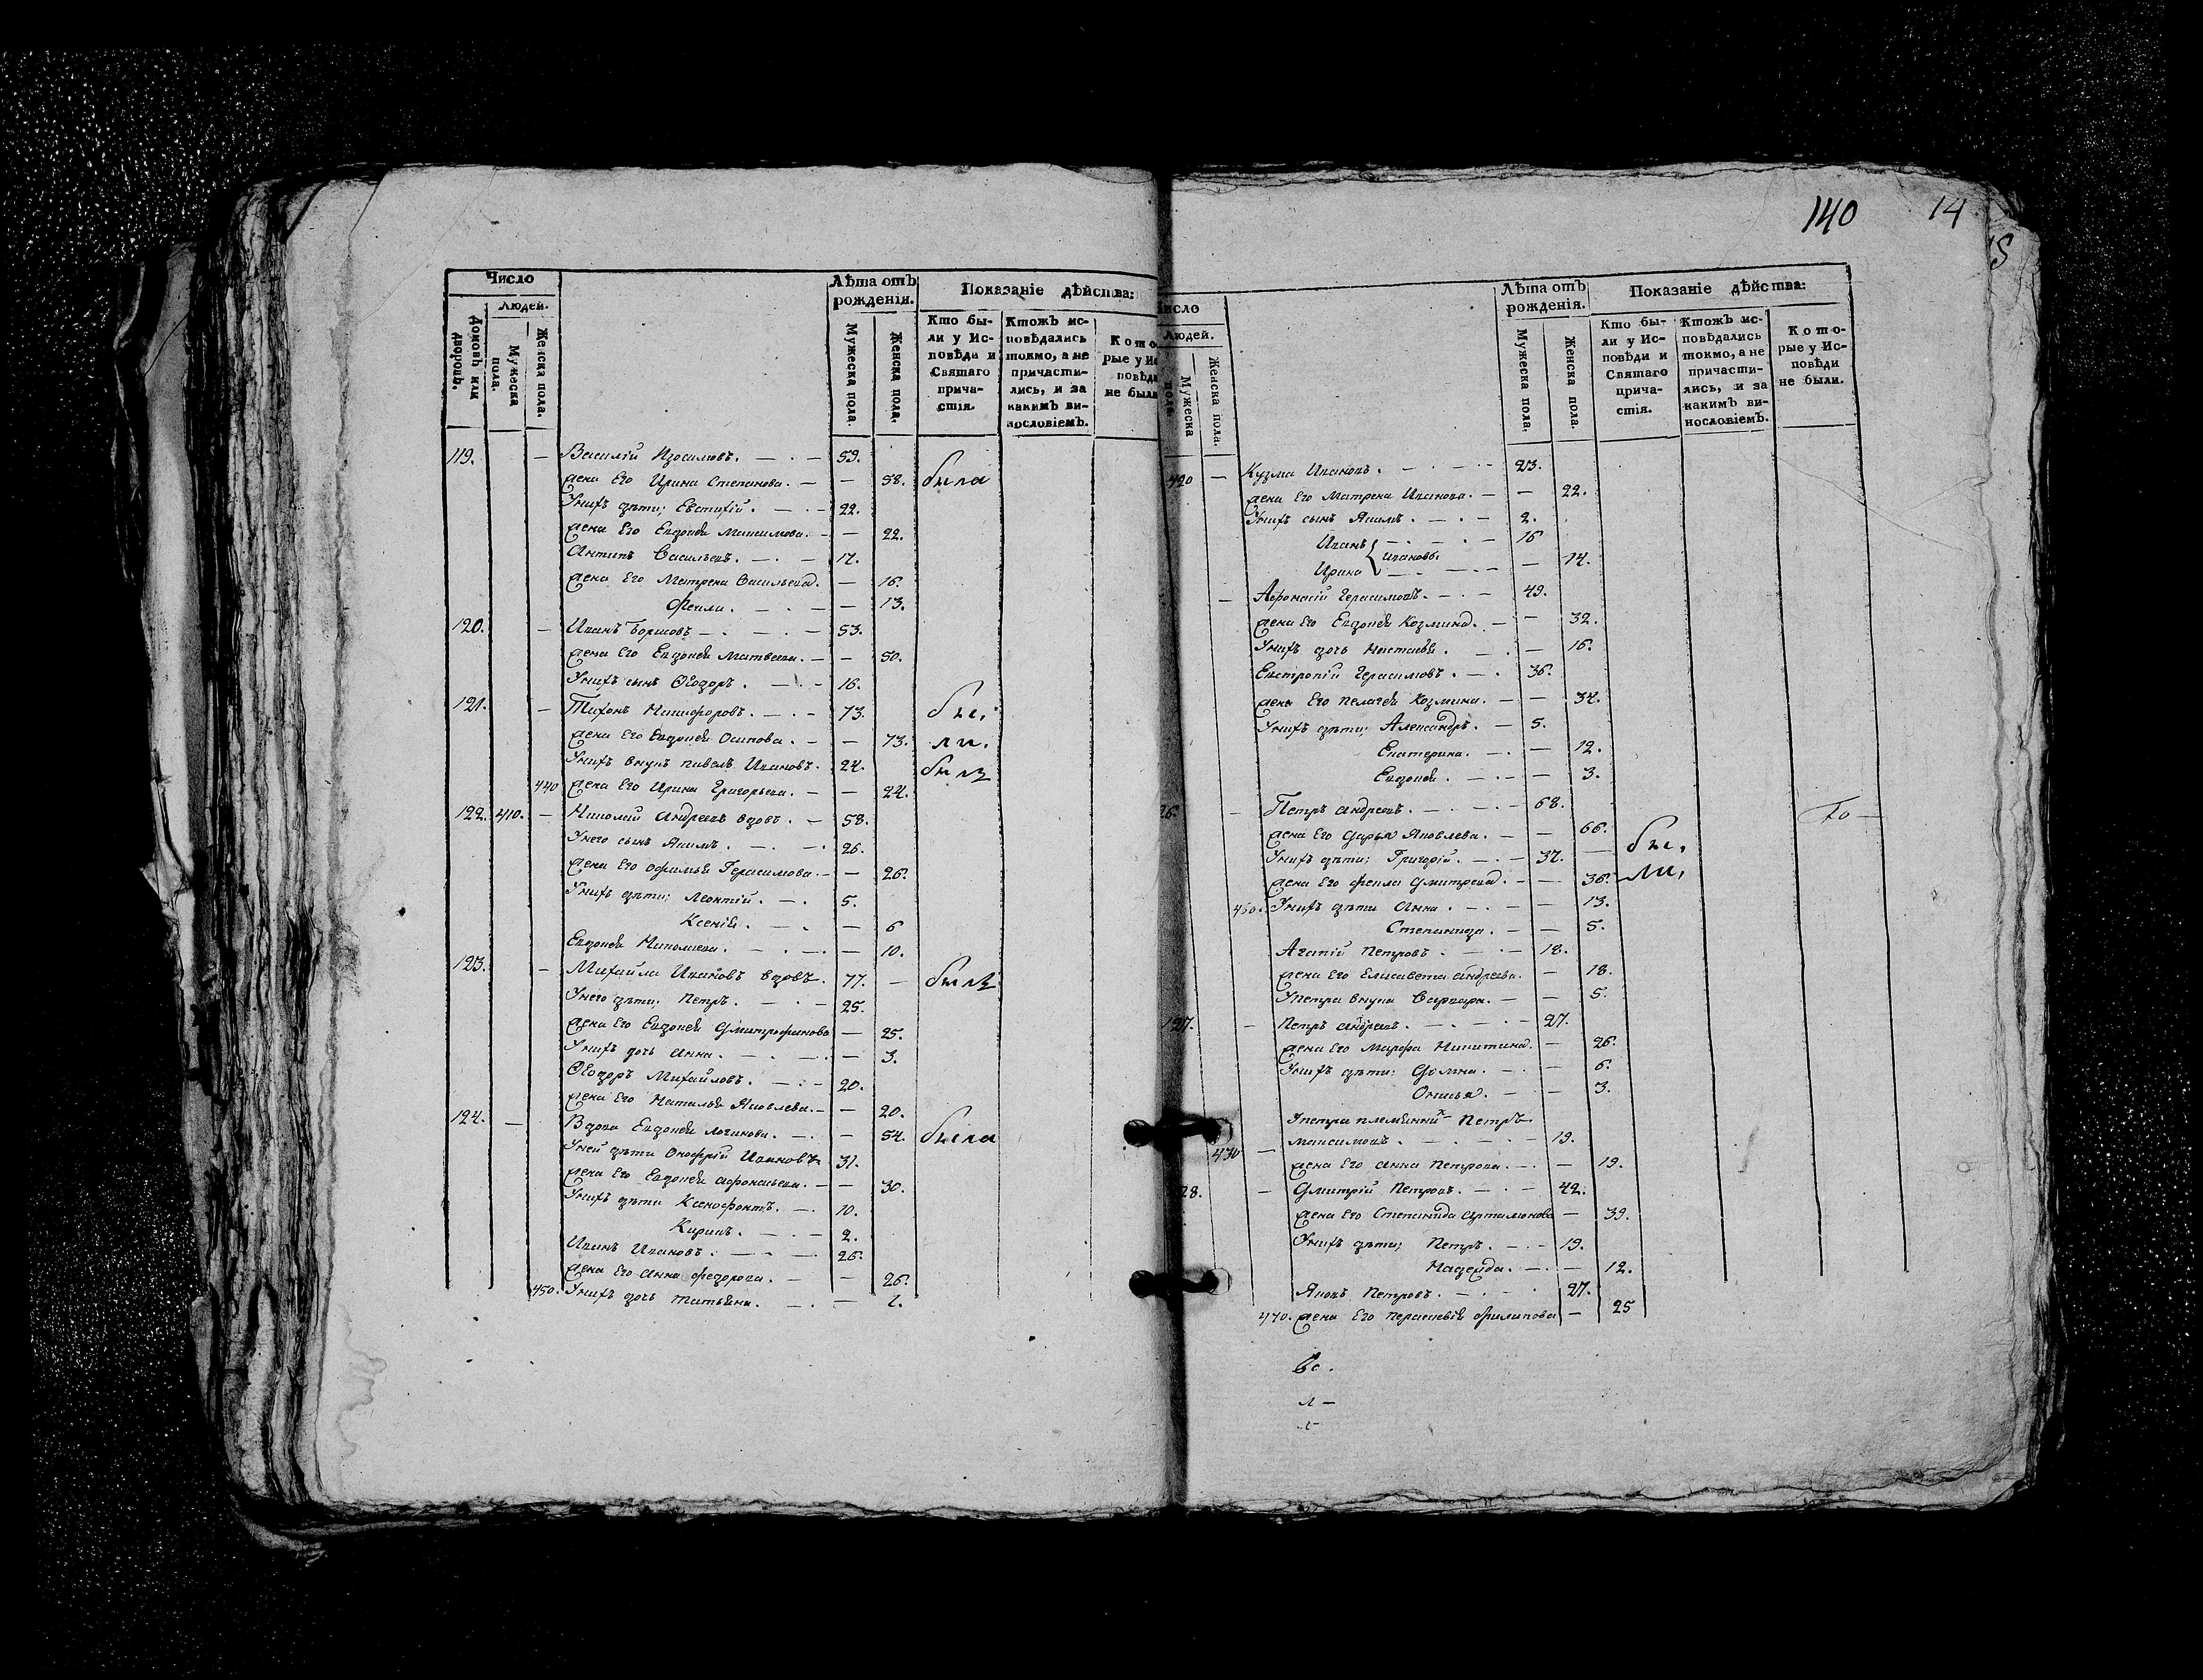 Число
Людей.
Домовъ или дворовъ.
Мужеска пола.
Женска пола.
Лѣта отъ рожденія.
Мужеска пола.
Женска пола.
Показаніе дѣйства:
Кто бы-
ли у Ис-
повѣди и
Святаго
прича-
стія.
Ктожъ ис-
повѣдались
токмо, а не
причасти-
лись, и за
какимъ ви-
нословіемъ.
Кото
рые у Ис
повѣди
не были
119. — Василій Изосимовъ. — 59.
жена Его Ирина Степанова. — — 58. была
Унихъ дѣти; Евстифій. — 22.
жена Его Евдокея Максимова. — 22.
Антипъ Васильевъ. — 17.
жена Его Матрена Васильева. — 16.
Фекла. — — 13.
120. — Иванъ Борисовъ — 53.
жена Его Евдокея Матвеева. — — 50.
Унихъ сынъ Ѳеодоръ. — 16.
121. — Тихонъ Никифоровъ. — 73. бы,
жена Его Евдокея Осипова. — — 73. ли.
Унихъ внукъ павелъ Ивановъ. 24. былъ
440 жена Его Ирина Григорьева. — — 24.
122. 410. — Николай Андреевъ вдовъ. — 58.
Унего сынъ Якимъ. — 26.
жена Его Офимья Герасимова. — — 26.
Унихъ дѣти; Леонтій. — 5.
Ксенія. — — 6
Евдокея Николаева. — — 10.
123. — Михайла Ивановъ вдовъ. 77. — былъ
Унего дѣти; Петръ. — 25.
жена Его Евдокея Дмитрофанова — 25.
Унихъ дочь Анна. — — 3.
Ѳеодоръ Михайловъ. — 20.
жена Его Наталья Яковлева. — — 20.
124. — Вдова Евдокея Логинова. — — 54. была
Уней дѣти Онофрій Ивановъ 31.
жена Его Евдокея Афонасьева. — — 30.
Унихъ дѣти Ксенофонтъ. — 10.
Кирикъ. — 2.
Иванъ Ивановъ. — 26.
жена Его Анна Федорова. — — 26.
450. Унихъ дочь Татьяна. — — 1.
140 14
Число
Людей.
Мужеска пола.
Женска пола.
Лѣта отъ рожденія.
Мужеска пола.
Женска пола.
Показаніе дѣйства:
Кто бы-
ли у Ис-
повѣди и
Святаго
прича-
стія.
Ктожъ ис-
повѣдались
токмо, а не
причасти-
лись, и за
какимъ ви-
нословіемъ.
Кото-
рые у Ис-
повѣди
не были.
420 — Кузма Ивановъ. — 23.
жена Его Матрена Иванова. — — 22.
Унихъ сынъ Якимъ. — 2.
Иванъ — 16
Ивановы
Ирина — — 14.
— Афонасій Герасимовъ. — 49.
жена Его Евдокея Козмина. — — 32.
Унихъ дочь Настасья. — — 16.
Евстропій Герасимовъ. — 36.
жена Его Пелагея Козмина. — — 34.
Унихъ дѣти; Александръ. — 5.
Екатерина. — — 12.
Евдокея. — — 3.
26. — Петръ Андреевъ. — 68. То —
жена Его Дарья Яковлева. — — 66. бы,
Унихъ дѣти; Григорій. — 37. — ли,
жена Его Фекла Дмитрева. — — 36.
460. Унихъ дѣти Анна. — — 13.
Степанида. — — 5.
Агапій Петровъ. — 18.
жена Его Елисавета Андреева. — 18.
Упетра внука Варвара. — — 5.
127. — Петръ Андреевъ. — 27.
жена Его Марфа Никитина. — 26.
Унихъ дѣти: Домна. — — 6.
Онисья. — — 3.
Упетра племянникъ Петръ
Максимовъ. — 19.
430 — жена Его Анна Петрова. — — 19.
28. — Дмитрій Петровъ. — 42.
жена Его Степанида Арталионова — 39.
Унихъ дѣти; Петръ. — 19.
Надежда. — — 12.
Яковъ Петровъ. — 27.
470. жена Его Парасковія Филипова — 25